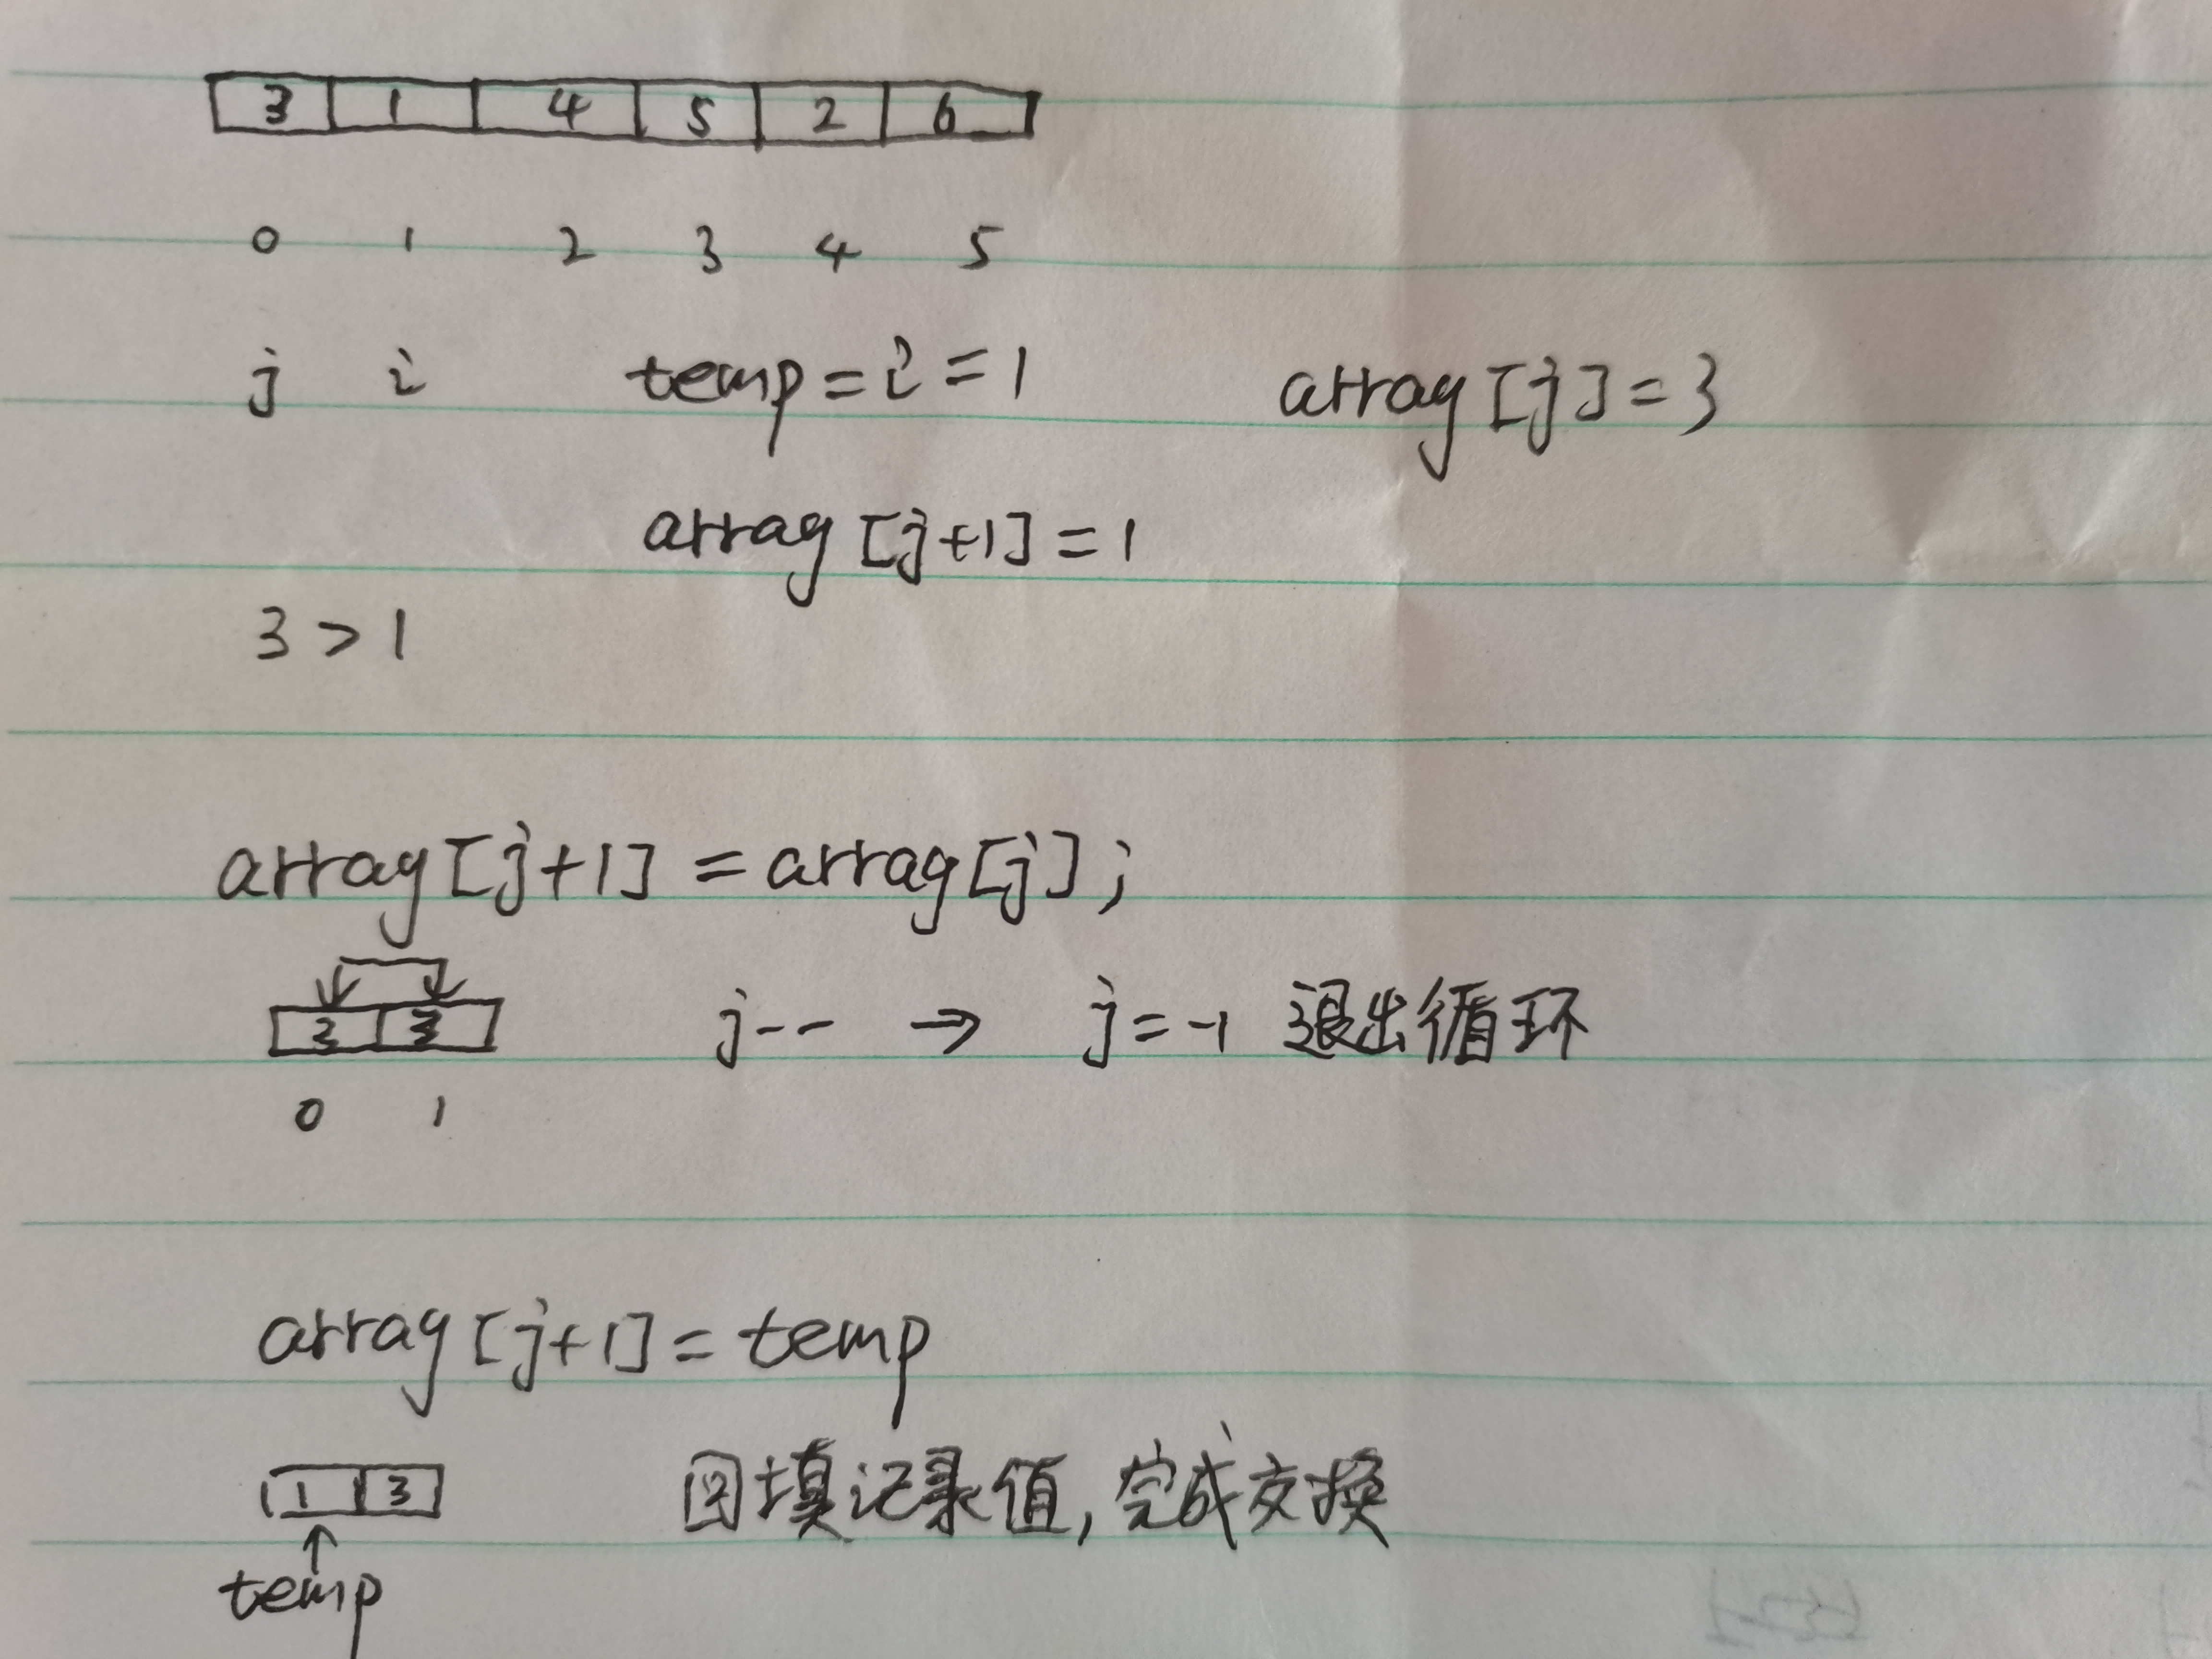 3 1 4 5 2 6
0 1 2 3 4 5
j i temp = i = 1 array[j] = 3
array[j+1] = 1
3 > 1
array[j+1] = array[j];
3 3 j-- → j = -1 退出循环
0 1
array[j+1] = temp
1 3 回填记录值, 完成交换
temp